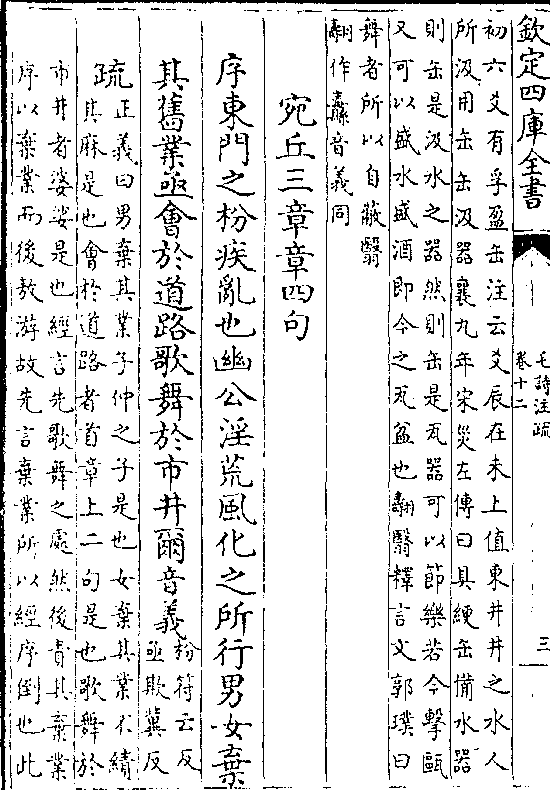 欽定四庫全書
毛詩注疏
卷十二
三
初六爻有孚盈缶注云爻辰在未上值東井井之水人
所汲用缶缶汲器襄九年宋災左傳曰具綆缶備水器
則缶是汲水之器然則缶是瓦器可以節樂若今擊甌
又可以盛水盛酒即今之瓦盆也翿翳釋言文郭璞曰
舞者所以自蔽翳
翿作纛音義同
宛丘三章章四句
序東門之枌疾亂也幽公淫荒風化之所行男女棄
其舊業亟會於道路歌舞於市井爾音義
枌符云反
亟欺冀反
疏
正義曰男棄其業子仲之子是也女棄其業不績
其麻是也會於道路者首章上二句是也歌舞於
市井者婆娑是也經言先歌舞之處然後責其棄業
序以棄業而後敖游故先言棄業所以經序倒也此